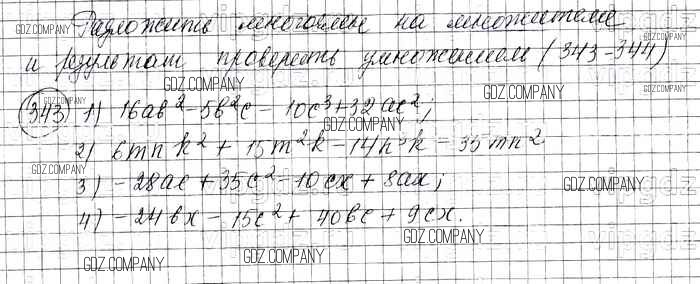 Разложить многочлен на множители
и результат проверить умножением (343-344)
343) 1) 16ab² - 5b²c - 10c³ + 32ac²;
2) 6mnk² + 15m²k - 14n³k - 35mn²
3) -28ac + 35c² - 10cx + 8ax;
4) -24bx - 15c² + 40bc + 9cx.
GDZ.COMPANY
GDZ.COMPANY
GDZ.COMPANY
GDZ.COMPANY
GDZ.COMPANY
GDZ.COMPANY
GDZ.COMPANY
GDZ.COMPANY
GDZ.COMPANY
GDZ.COMPANY